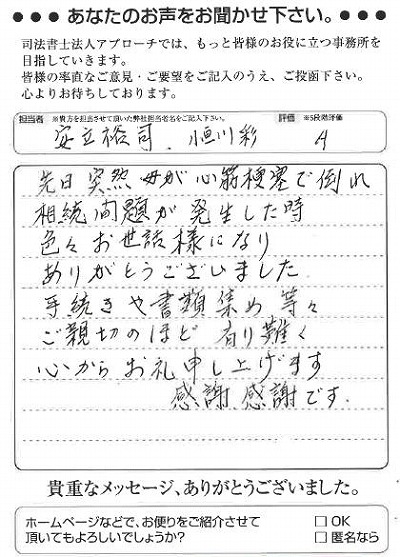 ●●●あなたのお声をお聞かせ下さい。●●●
司法書士法人アプローチでは、もっと皆様のお役に立つ事務所を
目指していきます。
皆様の率直なご意見・ご要望をご記入のうえ、ご投函下さい。
心よりお待ちしております。
担当者 ※貴方を担当させて頂いた弊社担当者名をご記入下さい。 評価 ※5段階評価
安立裕司. 恒川彩 4
先日突然母が心筋梗塞で倒れ
相続問題が発生した時
色々お世話様になり
ありがとうございました.
手続きや書類集め等々
ご親切のほど 有り難く
心からお礼申し上げます
感謝、感謝です.
貴重なメッセージ、ありがとうございました。
ホームページなどで、お便りをご紹介させて □OK
頂いてもよろしいでしょうか? □匿名なら